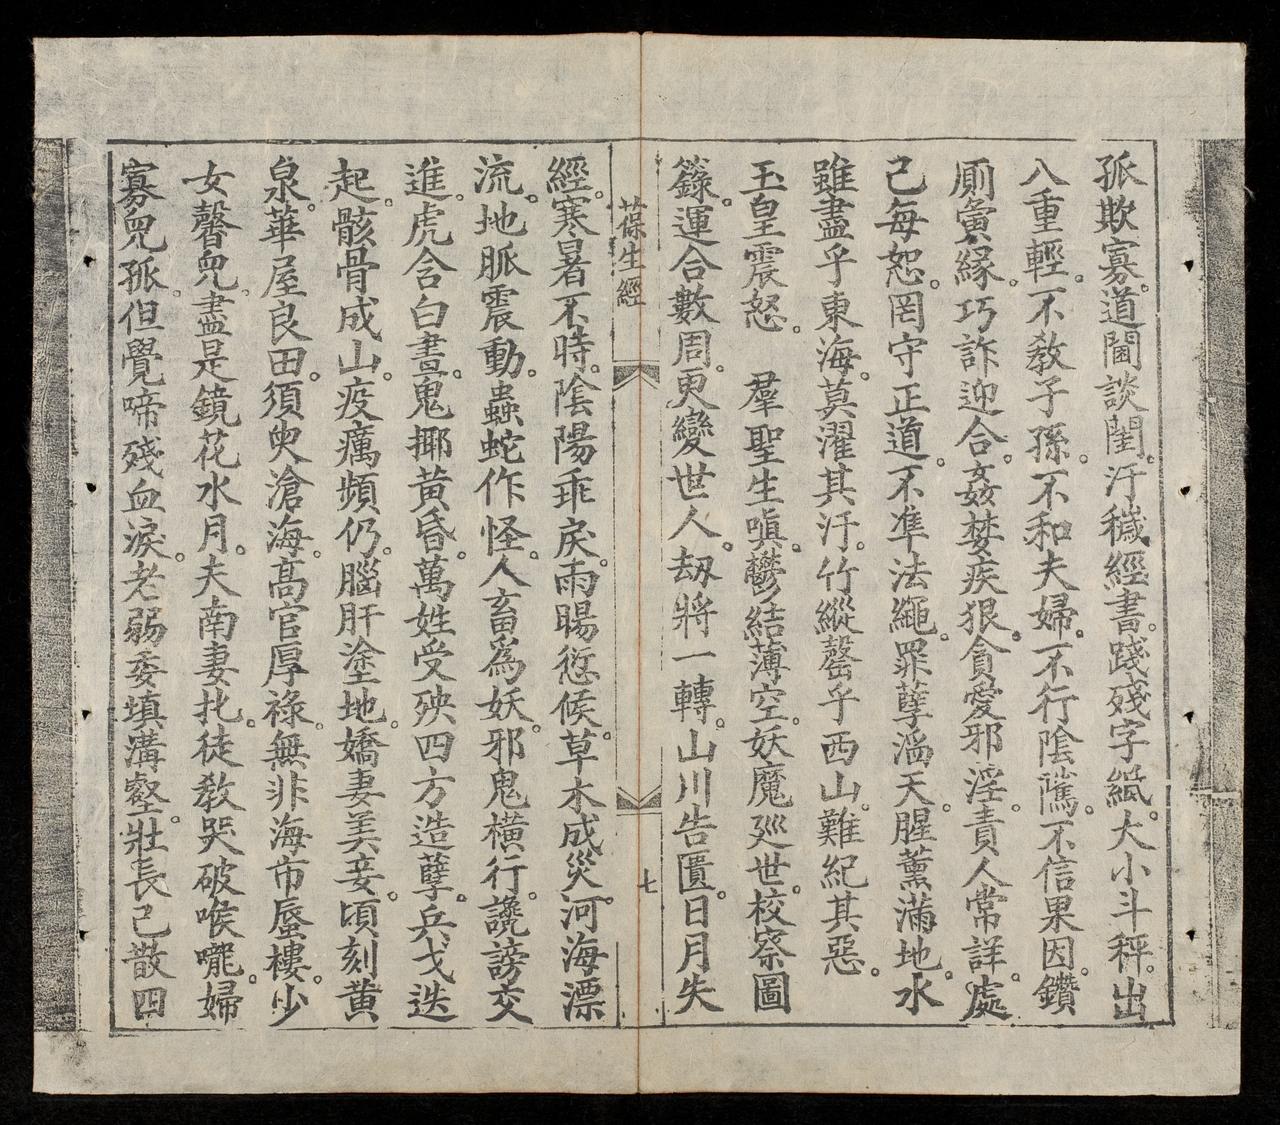 孤欺寡。道閫談閨。汙穢經書。踐殘字紙。大小斗秤。出
八重輕。不敎子孫。不和夫婦。不行陰隲。不信果因。鑽
厠夤緣。巧詐迎合。姦婪疾狠。貪愛邪淫。責人常詳。處
己每恕。罔守正道。不準法繩。罪孽滔天。腥薰滿地。水
雖盡乎東海。莫濯其汙。竹縱罄乎西山。難紀其惡。
玉皇震怒。 羣聖生嗔。鬱結薄空。妖魔廵世。校察圖
籙。運合數周。更變世人。刼將一轉。山川告匱。日月失
葆生經
七
經。寒暑不時。陰陽乖戾。雨暘愆候。草木成災。河海漂
流。地脈震動。蟲蛇作怪。人畜爲妖。邪鬼橫行。讒謗交
進。虎含白晝。鬼揶黃昏。萬姓受殃。四方造孽。兵戈迭
起。骸骨成山。疫癘頻仍。腦肝塗地。嬌妻美妾。頃刻黃
泉。華屋良田。須臾滄海。高官厚祿。無非海巿蜃樓。少
女馨兒。盡是鏡花水月。夫南妻北。徒教哭破喉嚨。婦
寡兒孤。但覺啼殘血淚。老弱委填溝壑。壯長己散四